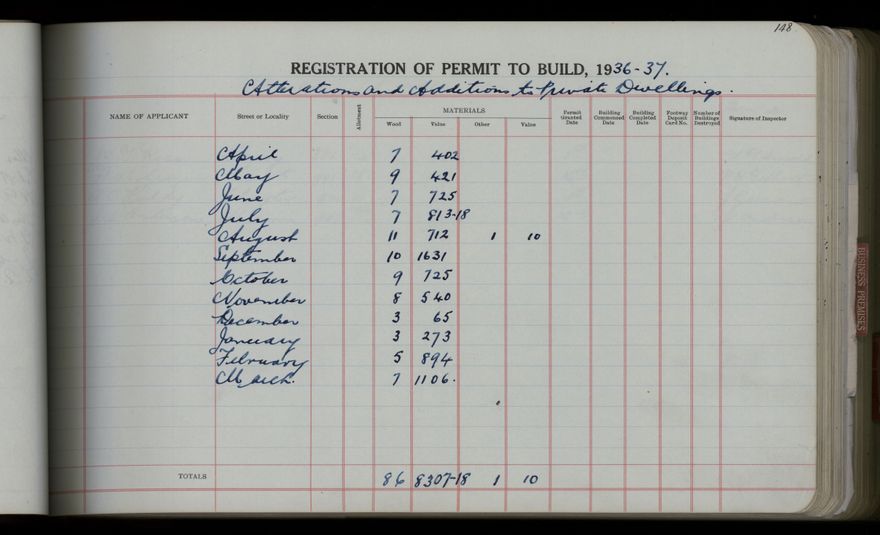 148
REGISTRATION OF PERMIT TO BUILD, 1936-37.
Alterations and Additions to Private Dwellings.
NAME OF APPLICANT Street or Locality Section Allotment MATERIALS Wood Value Other Value Permit Granted Date Building Commenced Date Building Completed Date Footway Deposit Card No. Number of Buildings Destroyed Signature of Inspector
April 7 402
May 9 421
June 7 725
July 7 813-18
August 11 712 1 10
September 10 1631
October 9 725
November 8 540
December 3 65
January 3 273
February 5 894
March. 7 1106.
TOTALS 86 8307-18 1 10
BUSINESS PREMISES